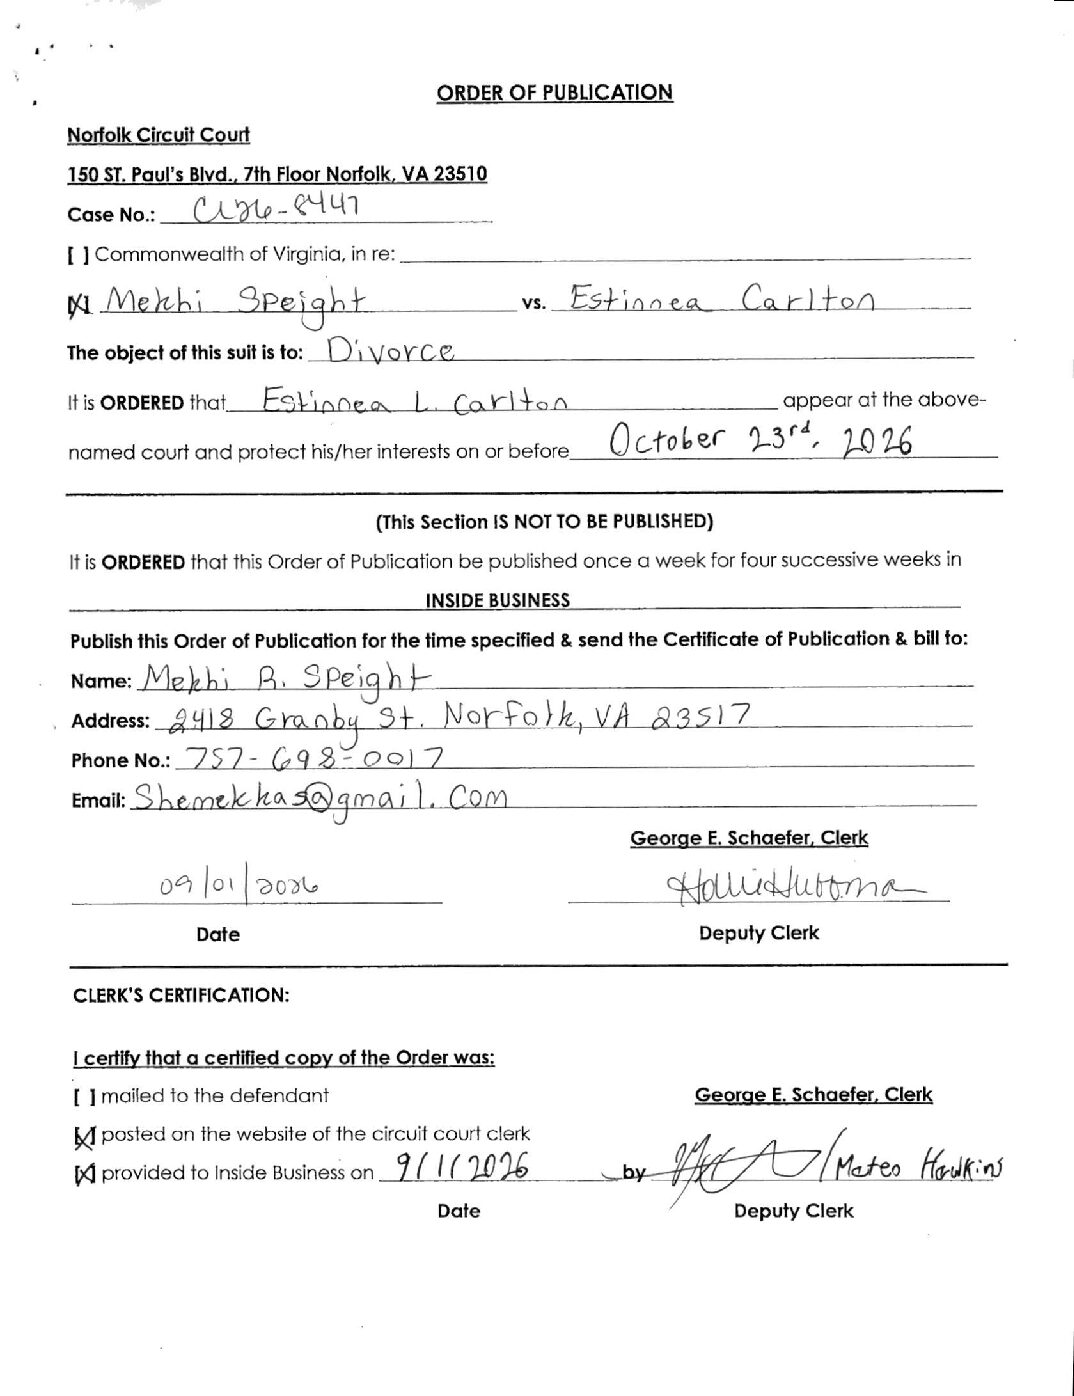 ORDER OF PUBLICATION
Norfolk Circuit Court
150 ST. Paul's Blvd., 7th Floor Norfolk, VA 23510
Case No.: CL26-8447
[ ] Commonwealth of Virginia, in re:
[X] Mekhi Speight vs. Estinnea Carlton
The object of this suit is to: Divorce
It is ORDERED that Estinnea L. Carlton appear at the above-
named court and protect his/her interests on or before October 23rd, 2026
(This Section IS NOT TO BE PUBLISHED)
It is ORDERED that this Order of Publication be published once a week for four successive weeks in
INSIDE BUSINESS
Publish this Order of Publication for the time specified & send the Certificate of Publication & bill to:
Name: Mekhi R. Speight
Address: 2418 Granby St. Norfolk, VA 23517
Phone No.: 757-698-0017
Email: Shemekkas@gmail.com
George E. Schaefer, Clerk
09/01/2026
Date Deputy Clerk
CLERK'S CERTIFICATION:
I certify that a certified copy of the Order was:
[ ] mailed to the defendant George E. Schaefer, Clerk
[X] posted on the website of the circuit court clerk
[X] provided to Inside Business on 9/1/2026 by /Mateo Hawkins
Date Deputy Clerk